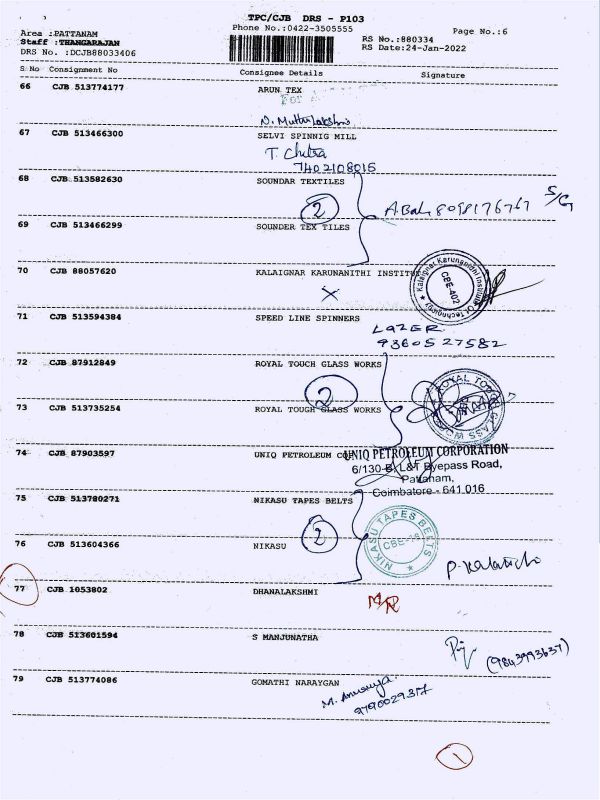 TPC/CJB DRS - P103
Phone No.:0422-3505555
Page No.:6
Area :PATTANAM
Staff :THANGARAJAN
DRS No. :DCJB88033406
RS No.:880334
RS Date:24-Jan-2022
S No Consignment No Consignee Details Signature
66 CJB 513774177 ARUN TEX
For
N. Muthulakshmi
67 CJB 513466300 SELVI SPINNIG MILL
T. Chitra
7402108015
68 CJB 513582630 SOUNDAR TEXTILES
2 8098176767 S/G
69 CJB 513466299 SOUNDER TEX TILES
70 CJB 88057620 KALAIGNAR KARUNANITHI INSTITUTE
Kalaignar Karunanidhi Institute Of Technology
CBE-402
X
71 CJB 513594384 SPEED LINE SPINNERS
LAZER
9360527582
72 CJB 87912849 ROYAL TOUCH GLASS WORKS
2
ROYAL TOUGH GLASS WORKS
73 CJB 513735254 ROYAL TOUGH GLASS WORKS
74 CJB 87903597 UNIQ PETROLEUM
UNIQ PETROLEUM CORPORATION
6/130-B, L&T Byepass Road,
Pattanam,
Coimbatore - 641 016
75 CJB 513780271 NIKASU TAPES BELTS
2
NIKASU TAPES BELTS
76 CJB 513604366 NIKASU
77 CJB 1053802 DHANALAKSHMI
NR
78 CJB 513601594 S MANJUNATHA
(9843993637)
79 CJB 513774086 GOMATHI NARAYGAN
M. Anusuya.
9790029317
1